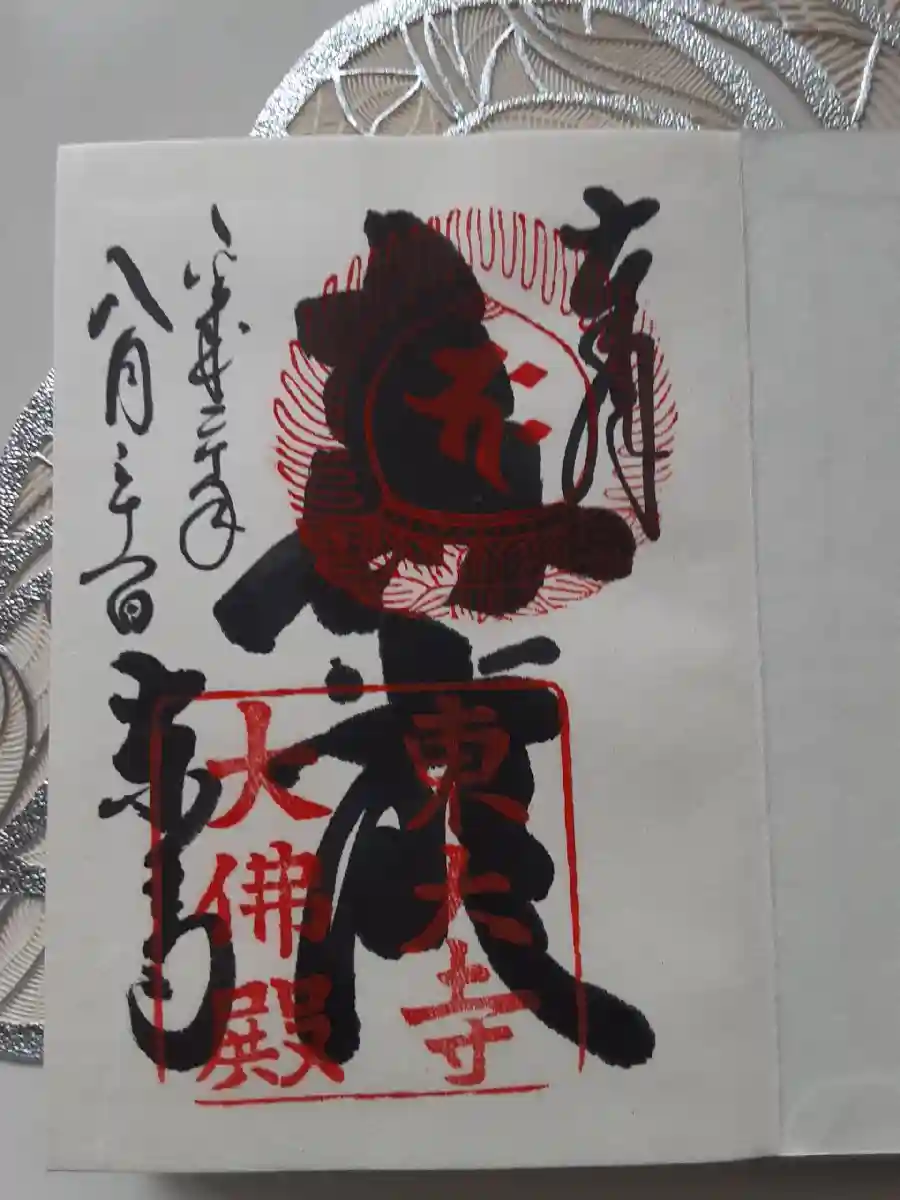 奉拝
華厳
平成二十年
八月 日
東大寺
東大寺
大佛殿